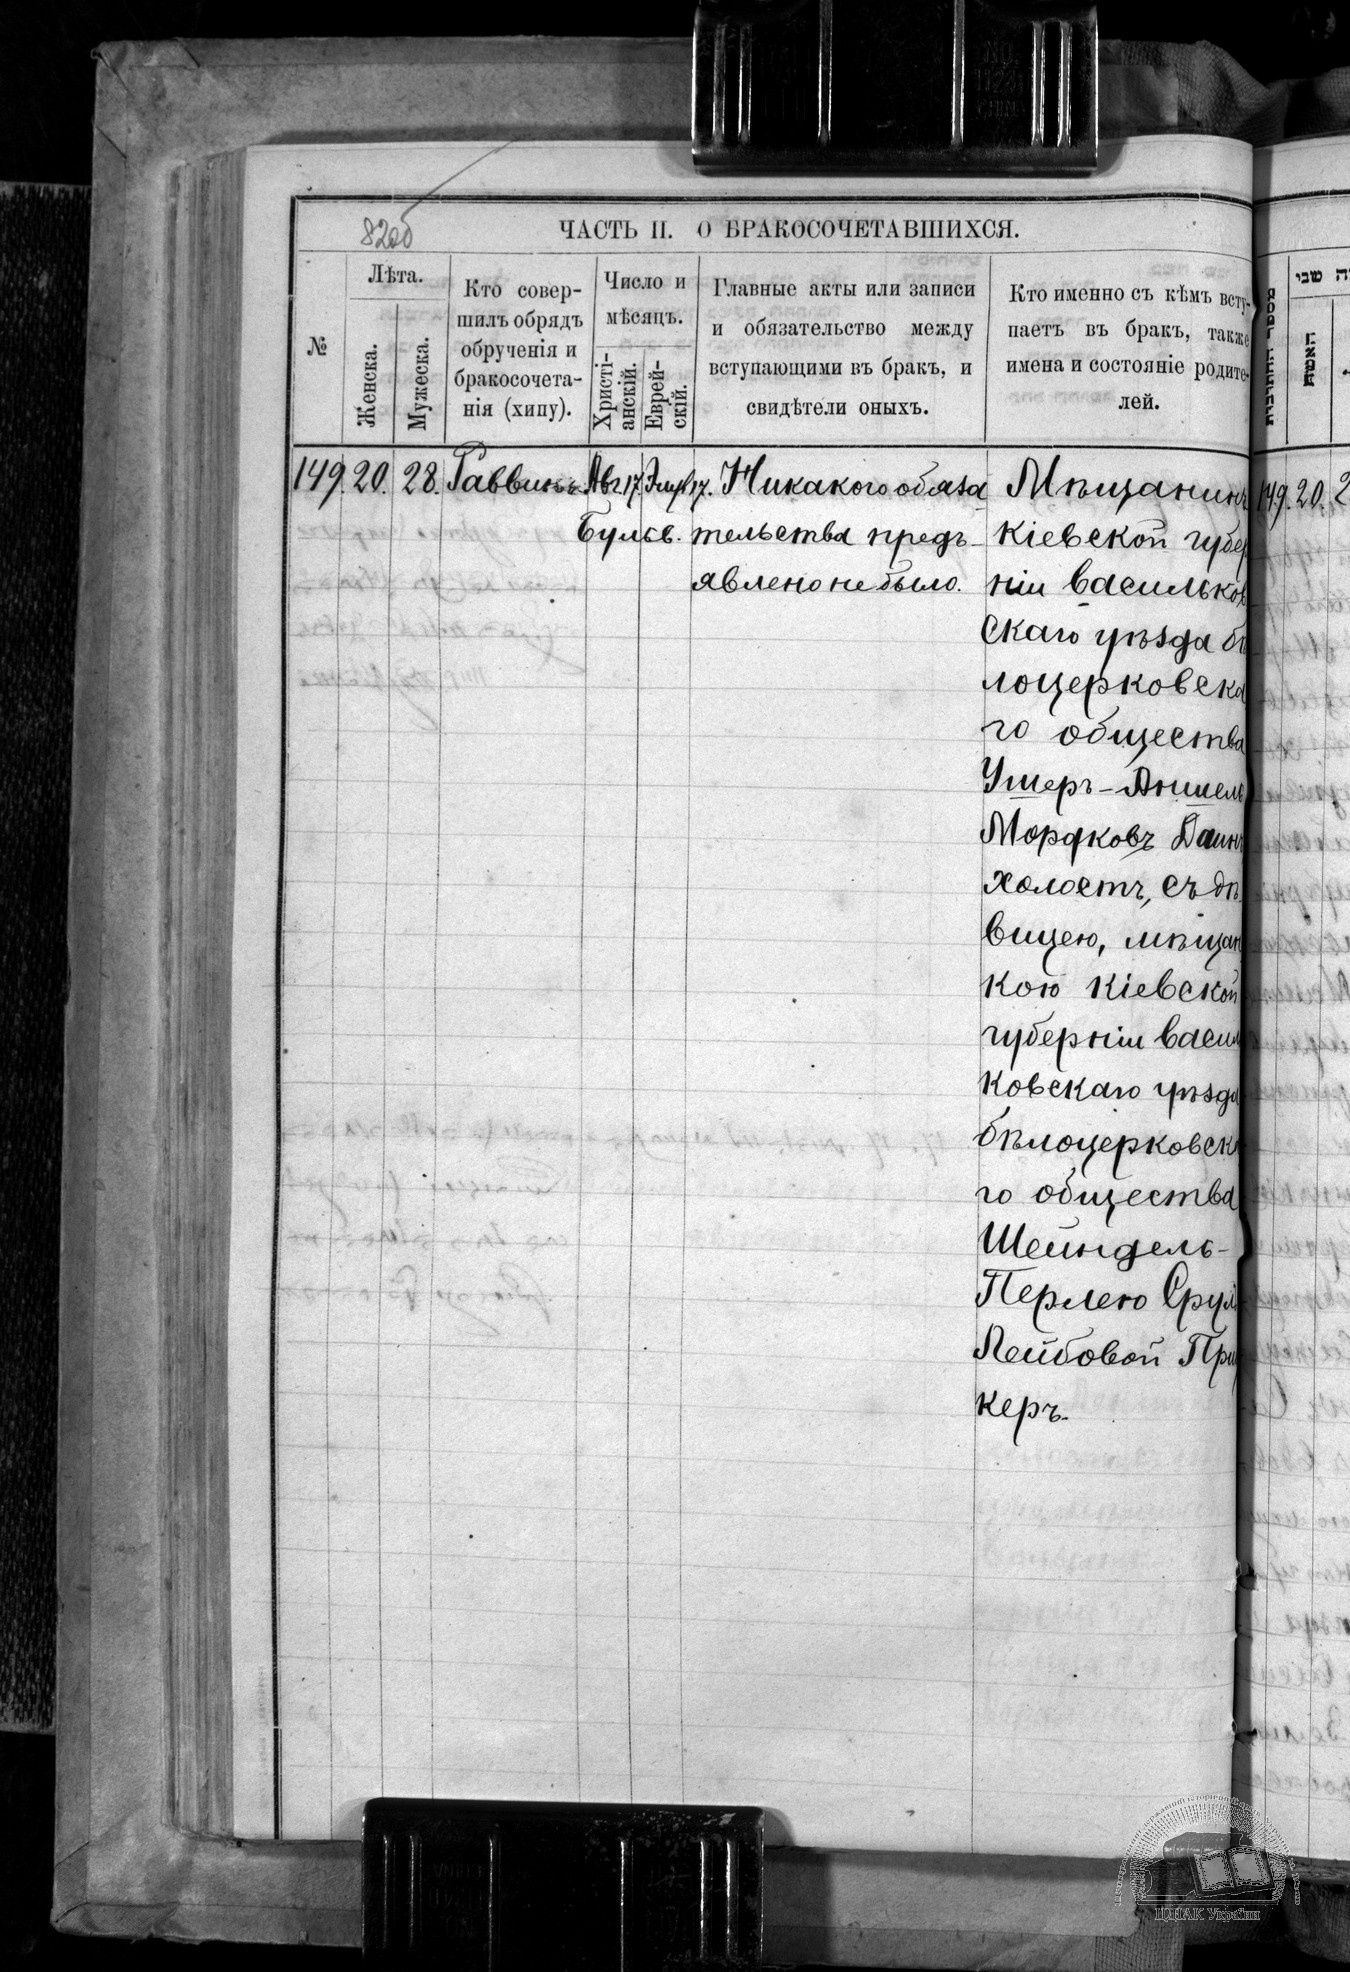 82об
ЧАСТЬ II. О БРАКОСОЧЕТАВШИХСЯ.
№
Лѣта.
Женска.
Мужеска.
Кто совер-
шилъ обрядъ
обрученія и
бракосочета-
нія (хипу).
Число и
мѣсяцъ.
Христі-
анскій.
Еврей-
скій.
Главные акты или записи
и обязательство между
вступающими въ бракъ, и
свидѣтели оныхъ.
Кто именно съ кѣмъ всту-
паетъ въ бракъ, также
имена и состояніе родите-
лей.
149. 20. 28. Раввинъ Авг. 17. Элул 17. Никакого обяза
тельства предъ-
явлено не было.
Мѣщанинъ
Кіевской губер
ніи Васильков
скаго уѣзда бѣ
лоцерковска
го общества
Ушеръ-Аншель
Мордковъ
холостъ, съ дѣ
вицею, мѣщан
кою Кіевской
губерніи Васил
ковскаго уѣзда
бѣлоцерковска
го общества
Шейндель-
Перлею Срул
Лейбовой При
керъ.
מספר החתונה
האשה
שני
149. 20. 2
ЦДІАК України